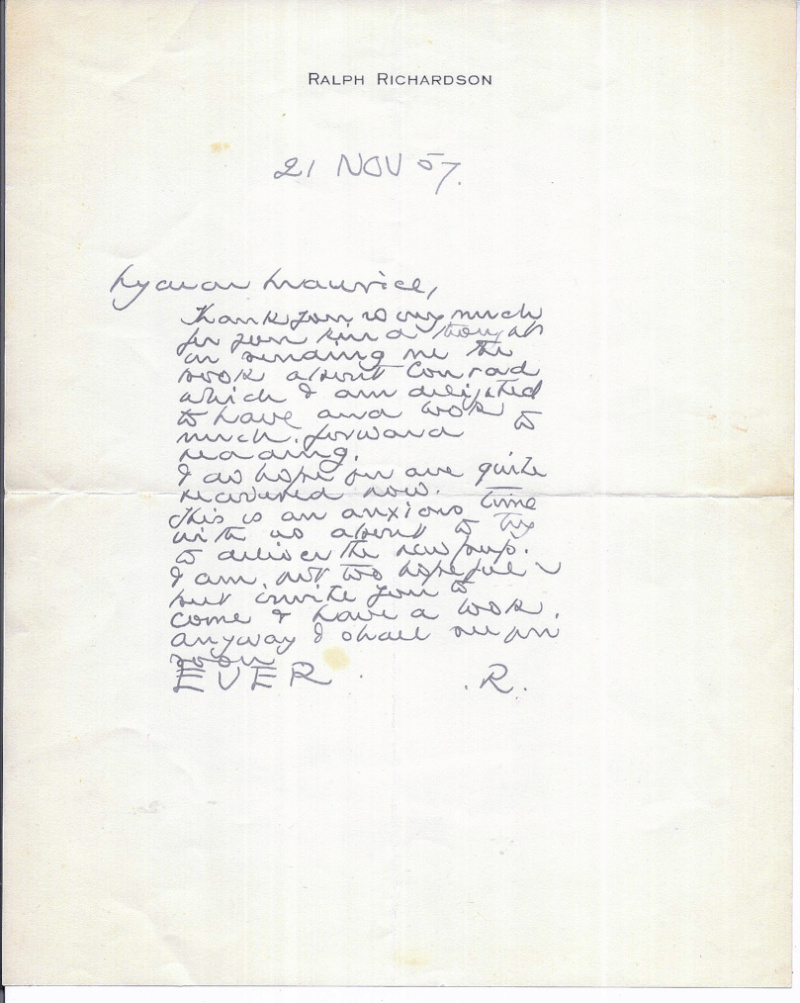 RALPH RICHARDSON
21 NOV 57.
My dear Maurice,
Thank you so very much
for your kind thought
in sending me the
book about Conrad
which I am delighted
to have and look to
much forward
reading.
I do hope you are quite
recovered now.
This is an anxious time
with us about to try
to deliver the new
I am not too hopeful ~
but invite you to
come & have a look.
anyway I shall see you
soon
EVER R.